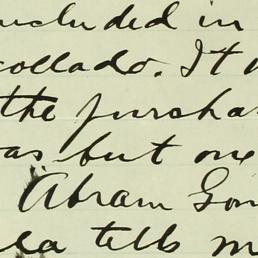 included in
collado. It
the purcha
as but one
Abram Gon
la tells m